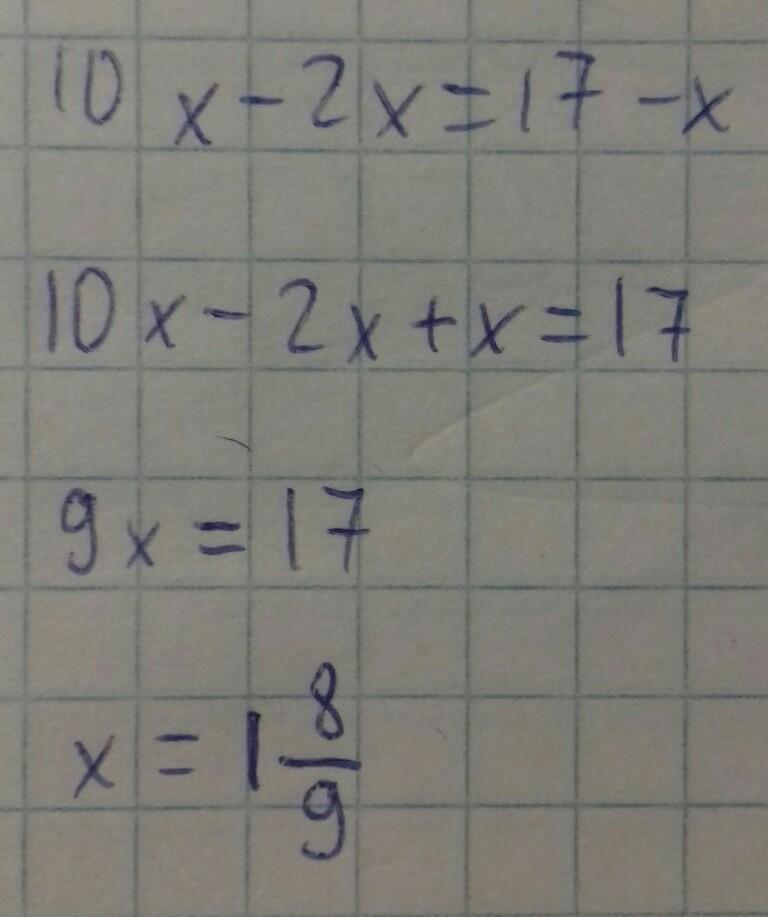 10x-2x=17-x
10x-2x+x=17
9x=17
x=1 8/9